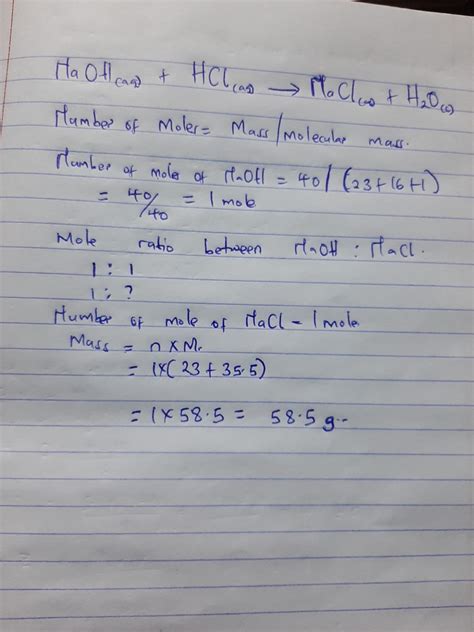 NaOH(aq) + HCl(aq) → NaCl(aq) + H2O(l)
Number of Moles = Mass/molecular mass.
Number of moles of NaOH = 40/(23+16+1)
= 40/40 = 1 mole
Mole ratio between NaOH : NaCl.
1 : 1
1 : ?
Number of mole of NaCl - 1 mole
Mass = n x Mr
= 1x(23 + 35.5)
= 1 x 58.5 = 58.5 g..